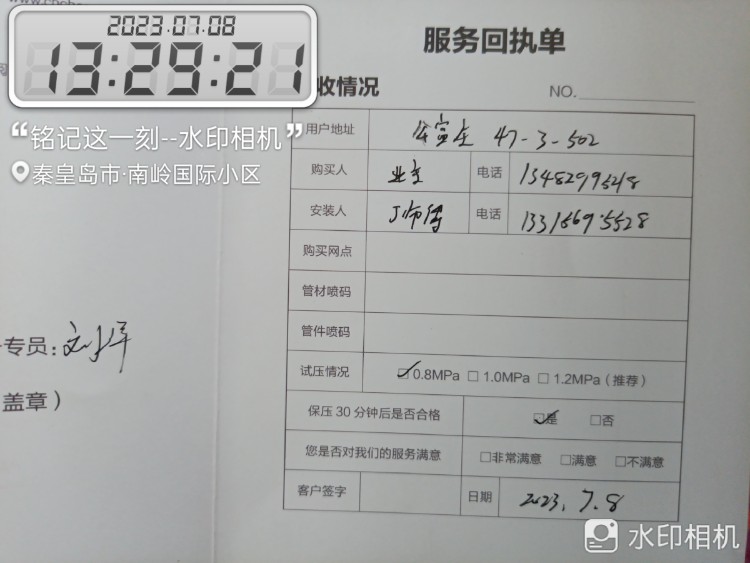 2023.07.08
13:29:21
“铭记这一刻--水印相机”
秦皇岛市·南岭国际小区
服务回执单
收情况
NO.
用户地址 47-3-502
购买人 业主 电话
安装人 丁师傅 电话
购买网点
管材喷码
管件喷码
试压情况 ☑0.8MPa □1.0MPa □1.2MPa（推荐）
保压30分钟后是否合格 ☑是 □否
您是否对我们的服务满意 □非常满意 □满意 □不满意
客户签字 日期 2023.7.8
专员：
盖章）
水印相机